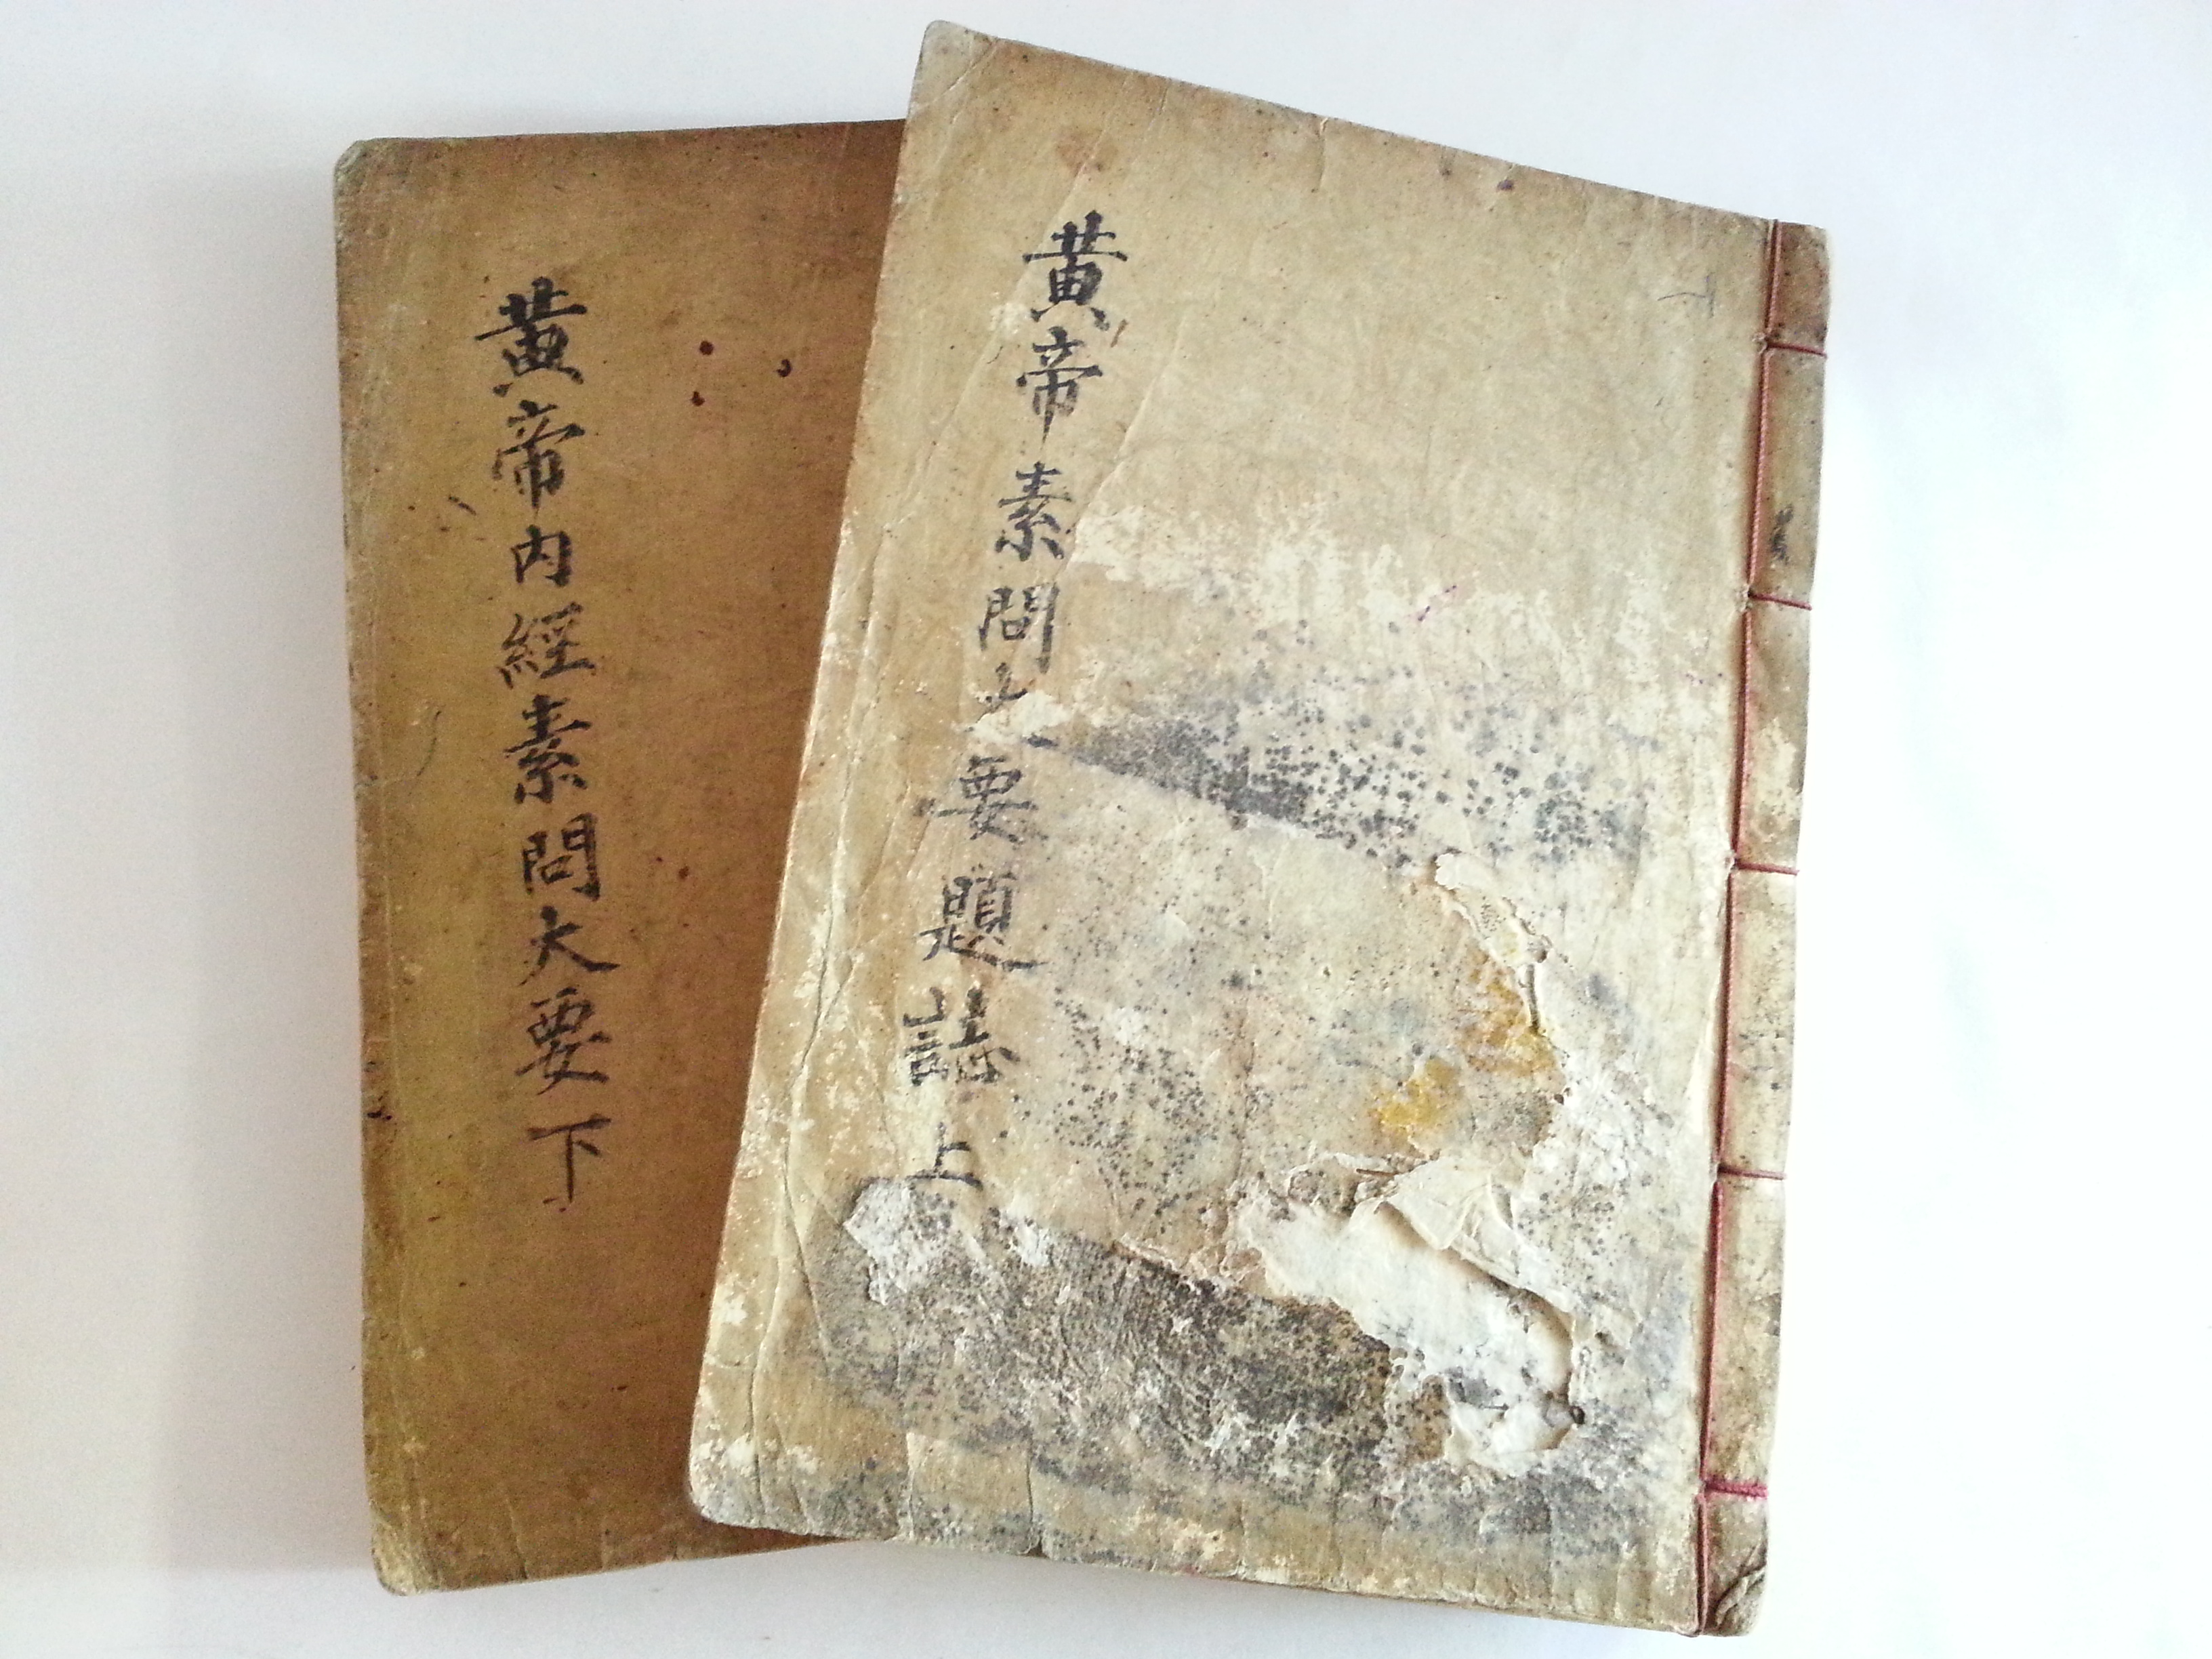 黃帝素問大要題誌上
黃帝內經素問大要下
下